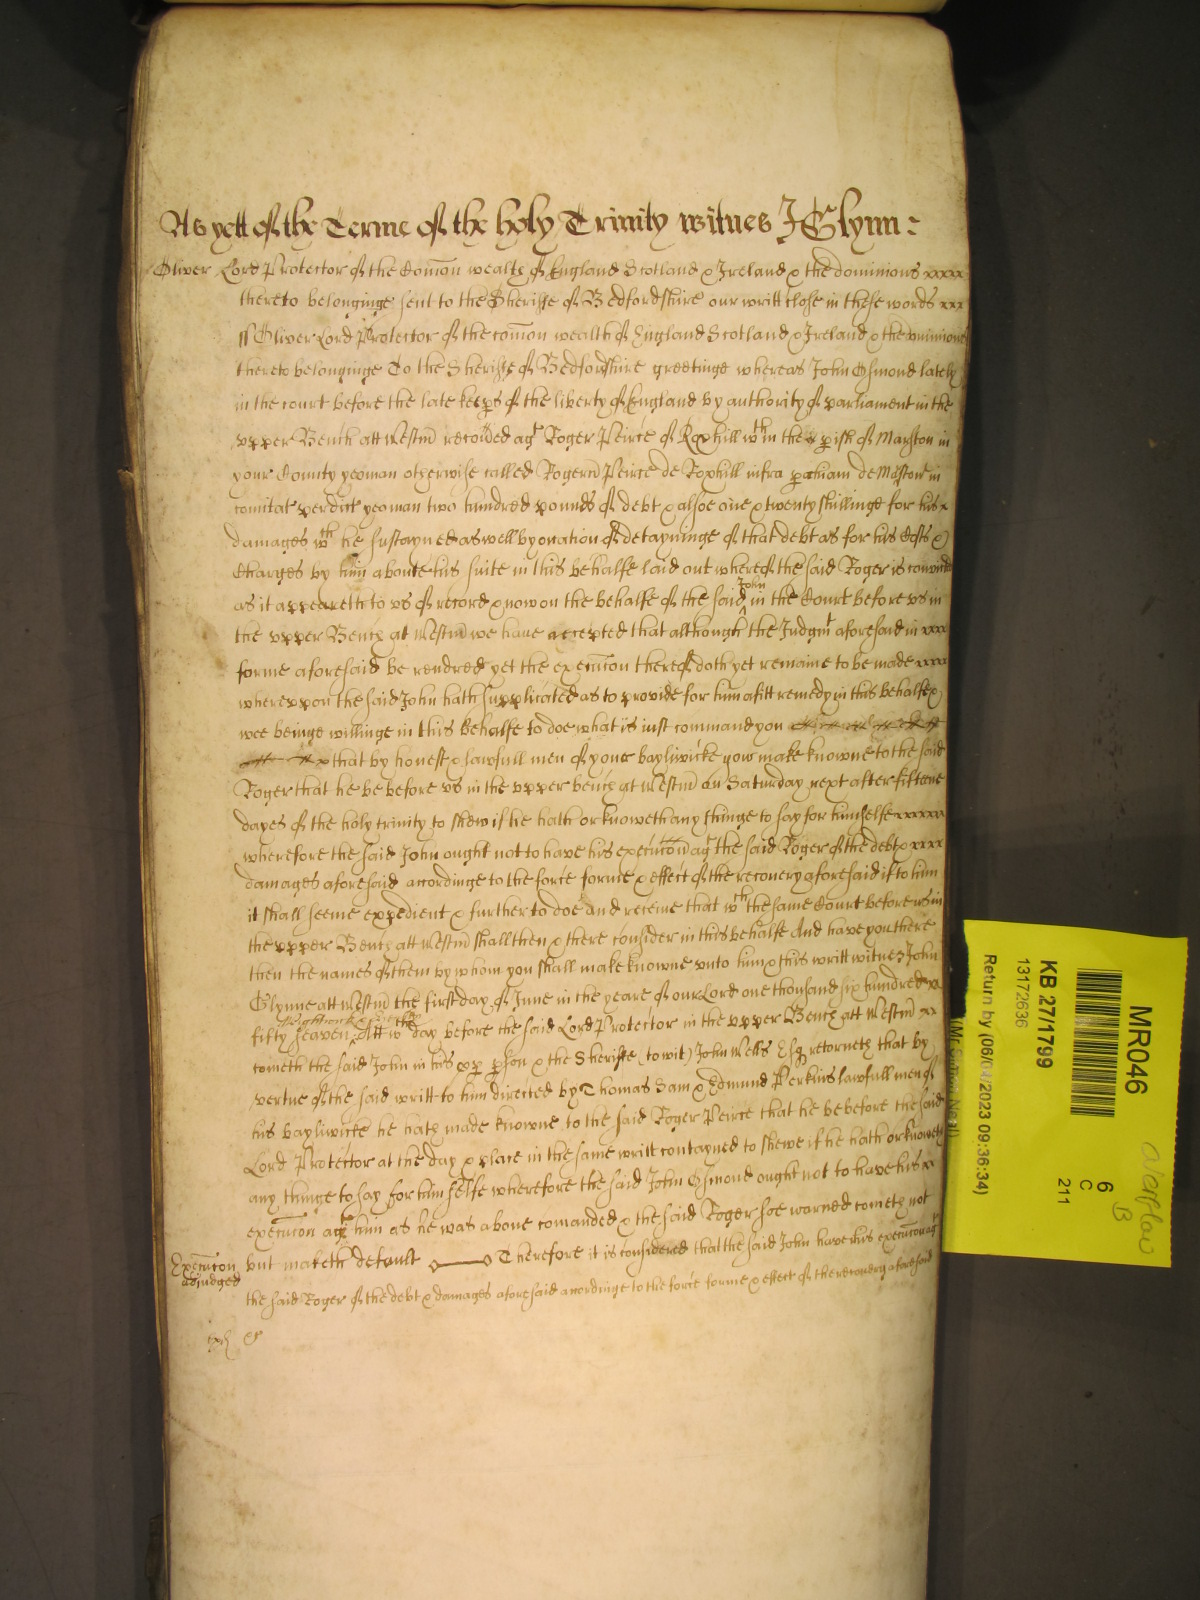 As yett of the Terme of the holy Trinity witnes J Glynn:
Oliver Lord Protector of the Comon wealth of England Scotland & Ireland & the dominions
thereto belonginge sent to the Sheriffe of Bedfordshire our writt close in these words
ss Oliver Lord Protector of the comon wealth of England Scotland & Ireland & the
thereto belonginge To the Sheriffe of Bedfordshire greetinge whereas John Osmond lately
in the court before the late keeps of the liberty of England by authority of parliament in the
upper Bench att Westm recorded agt Roger Peirce of Roxhill wthin the pish of Marston in
your County yeoman otherwise called Rogern Peirce de Roxhill infra de in
comitat perdict yeoman two hundred pounds of debt & alsoe one & twenty shillinge for his
damages wch he sustayned as well by of detayninge of that debt as for his Costs &
Charges by him aboute his suite in this behalfe laid out whereof the said Roger is
as it appeareth to us of record & now on the behalfe of the said John in the Court before us in
the upper Bench at Westm we have accepted that although the Judgmt aforesaid in
forme aforesaid be rendred yet the execucon thereof doth yet remaine to be made
whereuppon the said John hath supplicated as to provide for him a fitt remedy in this behalfe &
wee beinge willinge in this behalfe to doe what is iust command you
& that by honest & lawfull men of your bayliwicke yow make knowne to the said
Roger that he be before us in the upper bench at Westm on Saturday next after fifteene
dayes of the holy trinity to shew if he hath or knoweth any thinge to say for himselfe
wherefore the said John ought not to have his execucon agt the said Roger of the debt &
damages aforesaid accordinge to the force forme & effect of the recovery aforesaid if to him
it shall seeme expedient & further to doe and receive that wch the same Court before us in
the upper Bench att Westm shall then & there consider in this behalfe And have you there
then the names of them by whom you shall make knowne unto him & this writt witnes John
Glynne att Westm the first day of June in the yeare of our Lord one thousand six hundred
fifty seaven Att wch day before the said Lord Protector in the upper Bench att Westm
cometh the said John in his pp pson & the Sheriffe (to wit) John Wells Esq retorneth that by
vertue of the said writt to him directed by Thomas Sam & Edmund Perkins lawfull men of
his bayliwicke he hath made knowne to the said Roger Peirce that he be before the said
Lord Protector at the day & place in the same writt contayned to shewe if he hath or knoweth
any thinge to say for himselfe wherefore the said John Osmond ought not to have his
execucon agt him as he was above comanded & the said Roger soe warned cometh not
Execucon adjudged
but maketh default Therefore it is considered that the said John have his execucon agt
the said Roger of the debt & damages aforesaid accordinge to the force forme & effect of the recovery aforesaid
MR046
6
C
211
KB 27/1799
13172636
Return by (06/04/2023 09:36:34)